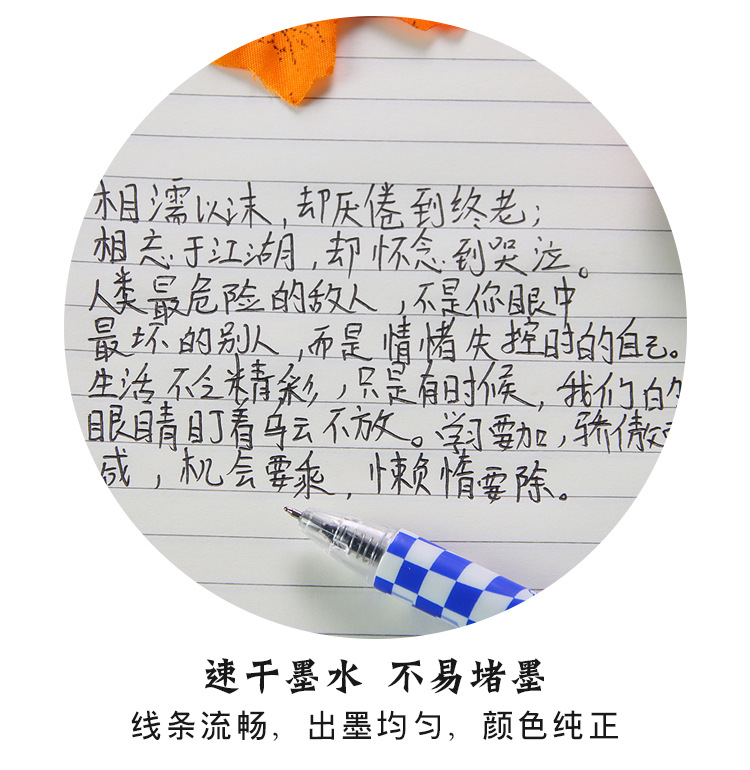 相濡以沫，却厌倦到终老；
相忘于江湖，却怀念到哭泣。
人类最危险的敌人，不是你眼中
最坏的别人，而是情绪失控时的自己。
生活不乏精彩，只是有时候，我们的
眼睛盯着乌云不放。学习要加，骄傲要
减，机会要乘，懒惰要除。
速干墨水 不易堵墨
线条流畅，出墨均匀，颜色纯正